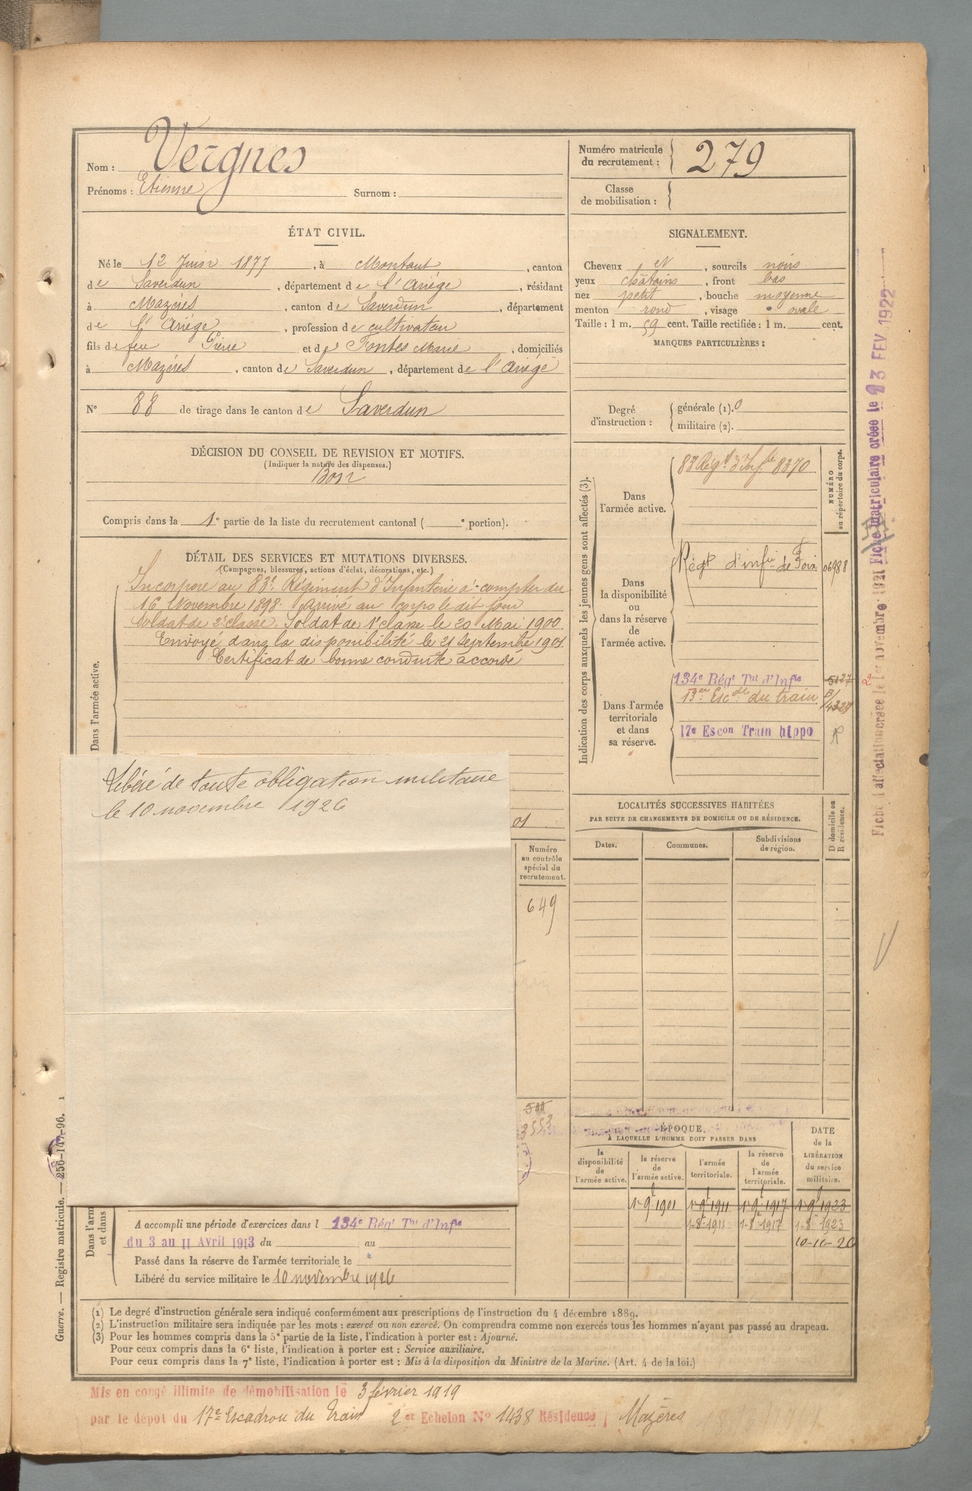 Nom : Vergnes
Prénoms : Etienne Surnom :
Numéro matricule
du recrutement : 279
Classe
de mobilisation :
ÉTAT CIVIL.
Né le 12 Juin 1877, à Montaut, canton
de Saverdun, département de l'Ariège, résidant
à Mazères, canton de Saverdun, département
de l'Ariège, profession de cultivateur
fils de feu Pierre et de Fontes Marie, domiciliés
à Mazères, canton de Saverdun, département de l'Ariège
N° 88 de tirage dans le canton de Saverdun
SIGNALEMENT.
Cheveux et, sourcils noirs
yeux châtains, front bas
nez petit, bouche moyenne
menton rond, visage ovale
Taille : 1 m. 59 cent. Taille rectifiée : 1 m. cent.
MARQUES PARTICULIÈRES :
Degré
d'instruction :
générale (1). 0
militaire (2).
DÉCISION DU CONSEIL DE REVISION ET MOTIFS.
(Indiquer la nature des dispenses.)
Bon
Compris dans la 1e partie de la liste du recrutement cantonal ( e portion).
DÉTAIL DES SERVICES ET MUTATIONS DIVERSES.
(Campagnes, blessures, actions d'éclat, décorations, etc.)
Dans l'armée active.
Incorporé au 83e Régiment d'Infanterie à compter du
16 Novembre 1898. Arrivé au corps le dit jour
Soldat de 2e classe. Soldat de 1e classe le 20 Mai 1900.
Envoyé dans la disponibilité le 21 Septembre 1901
Certificat de bonne conduite accordé
Libéré de toute obligation militaire
le 10 novembre 1926
01
Numéro
au contrôle
spécial du
recrutement.
649
3553
Indication des corps auxquels les jeunes gens sont affectés (3).
NUMÉRO
au répertoire du corps.
Dans
l'armée active.
83 Régt d'Inf. 8370
Dans
la disponibilité
ou
dans la réserve
de
l'armée active.
Régt d'infie de Foix
Dans l'armée
territoriale
et dans
sa réserve.
134e Régt Tal d'Infie
Escon du train
17e Escon Train hippo
LOCALITÉS SUCCESSIVES HABITÉES
PAR SUITE DE CHANGEMENTS DE DOMICILE OU DE RÉSIDENCE.
Dates. Communes. Subdivisions
de région.
D domicile ou
R résidence.
ÉPOQUE
À LAQUELLE L'HOMME DOIT PASSER DANS
la
disponibilité
de
l'armée active.
la réserve
de
l'armée active.
l'armée
territoriale.
la réserve
de
l'armée
territoriale.
DATE
de la
LIBÉRATION
du service
militaire.
1-9-1901 1-9-1911 1-9-1917 1-9-1923
1-8-1911 1-8-1917 1-8-1923
A accompli une période d'exercices dans l 134e Régt Tal d'Infie
du 3 au 11 Avril 1913 du au
Passé dans la réserve de l'armée territoriale le
Libéré du service militaire le 10 novembre 1926
(1) Le degré d'instruction générale sera indiqué conformément aux prescriptions de l'instruction du 4 décembre 1889.
(2) L'instruction militaire sera indiquée par les mots : exercé ou non exercé. On comprendra comme non exercés tous les hommes n'ayant pas passé au drapeau.
(3) Pour les hommes compris dans la 5e partie de la liste, l'indication à porter est : Ajourné.
Pour ceux compris dans la 6e liste, l'indication à porter est : Service auxiliaire.
Pour ceux compris dans la 7e liste, l'indication à porter est : Mis à la disposition du Ministre de la Marine. (Art. 4 de la loi.)
Mis en congé illimité de démobilisation le 3 février 1919
par le dépôt du 17e Escadron du Train 2e Echelon N° 1438 Résidence Mazères
Guerre. — Registre matricule.